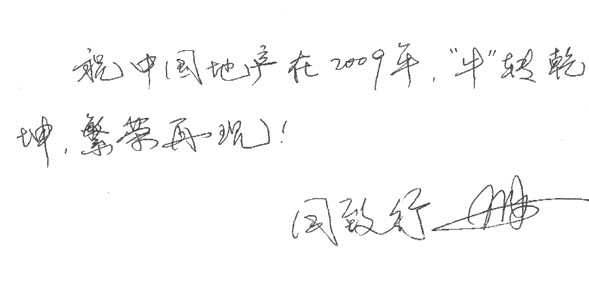 祝中国地产在2009年，“牛”转乾
坤，繁荣再现！
同致行